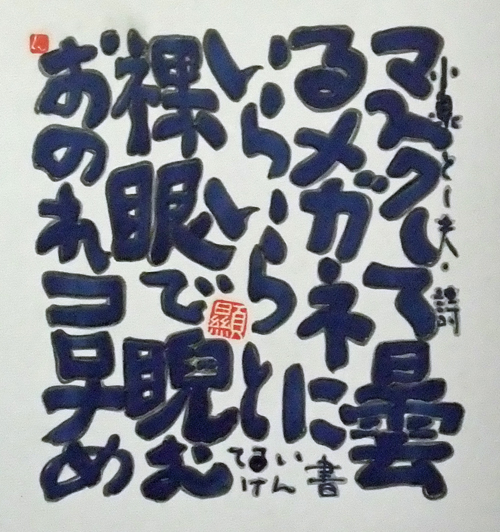 小泉とし夫・詩
マスクして曇
るメガネに
いらいらと
裸眼で睨む
おのれコロナめ
書
てるい
けん
顯